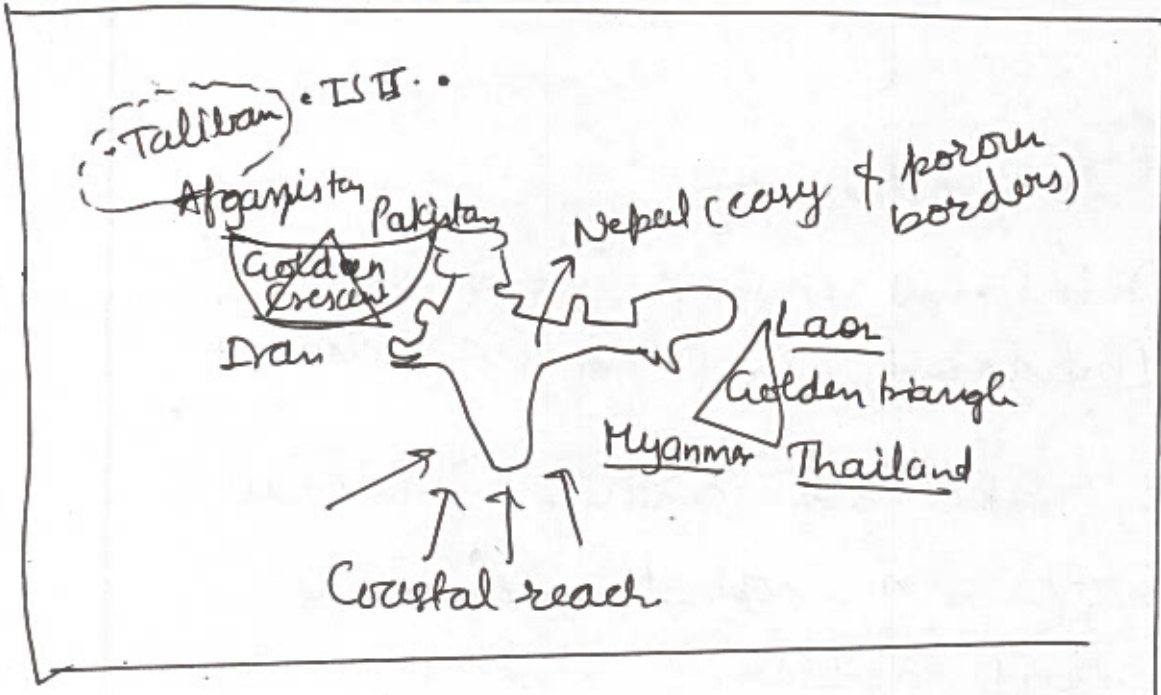 · Taliban · ISI · ·
Afganistan Pakistan
Nepal (easy & porous
borders)
Golden
Crescent
Iran
Laos
Golden triangle
Myanmar Thailand
Coastal reach